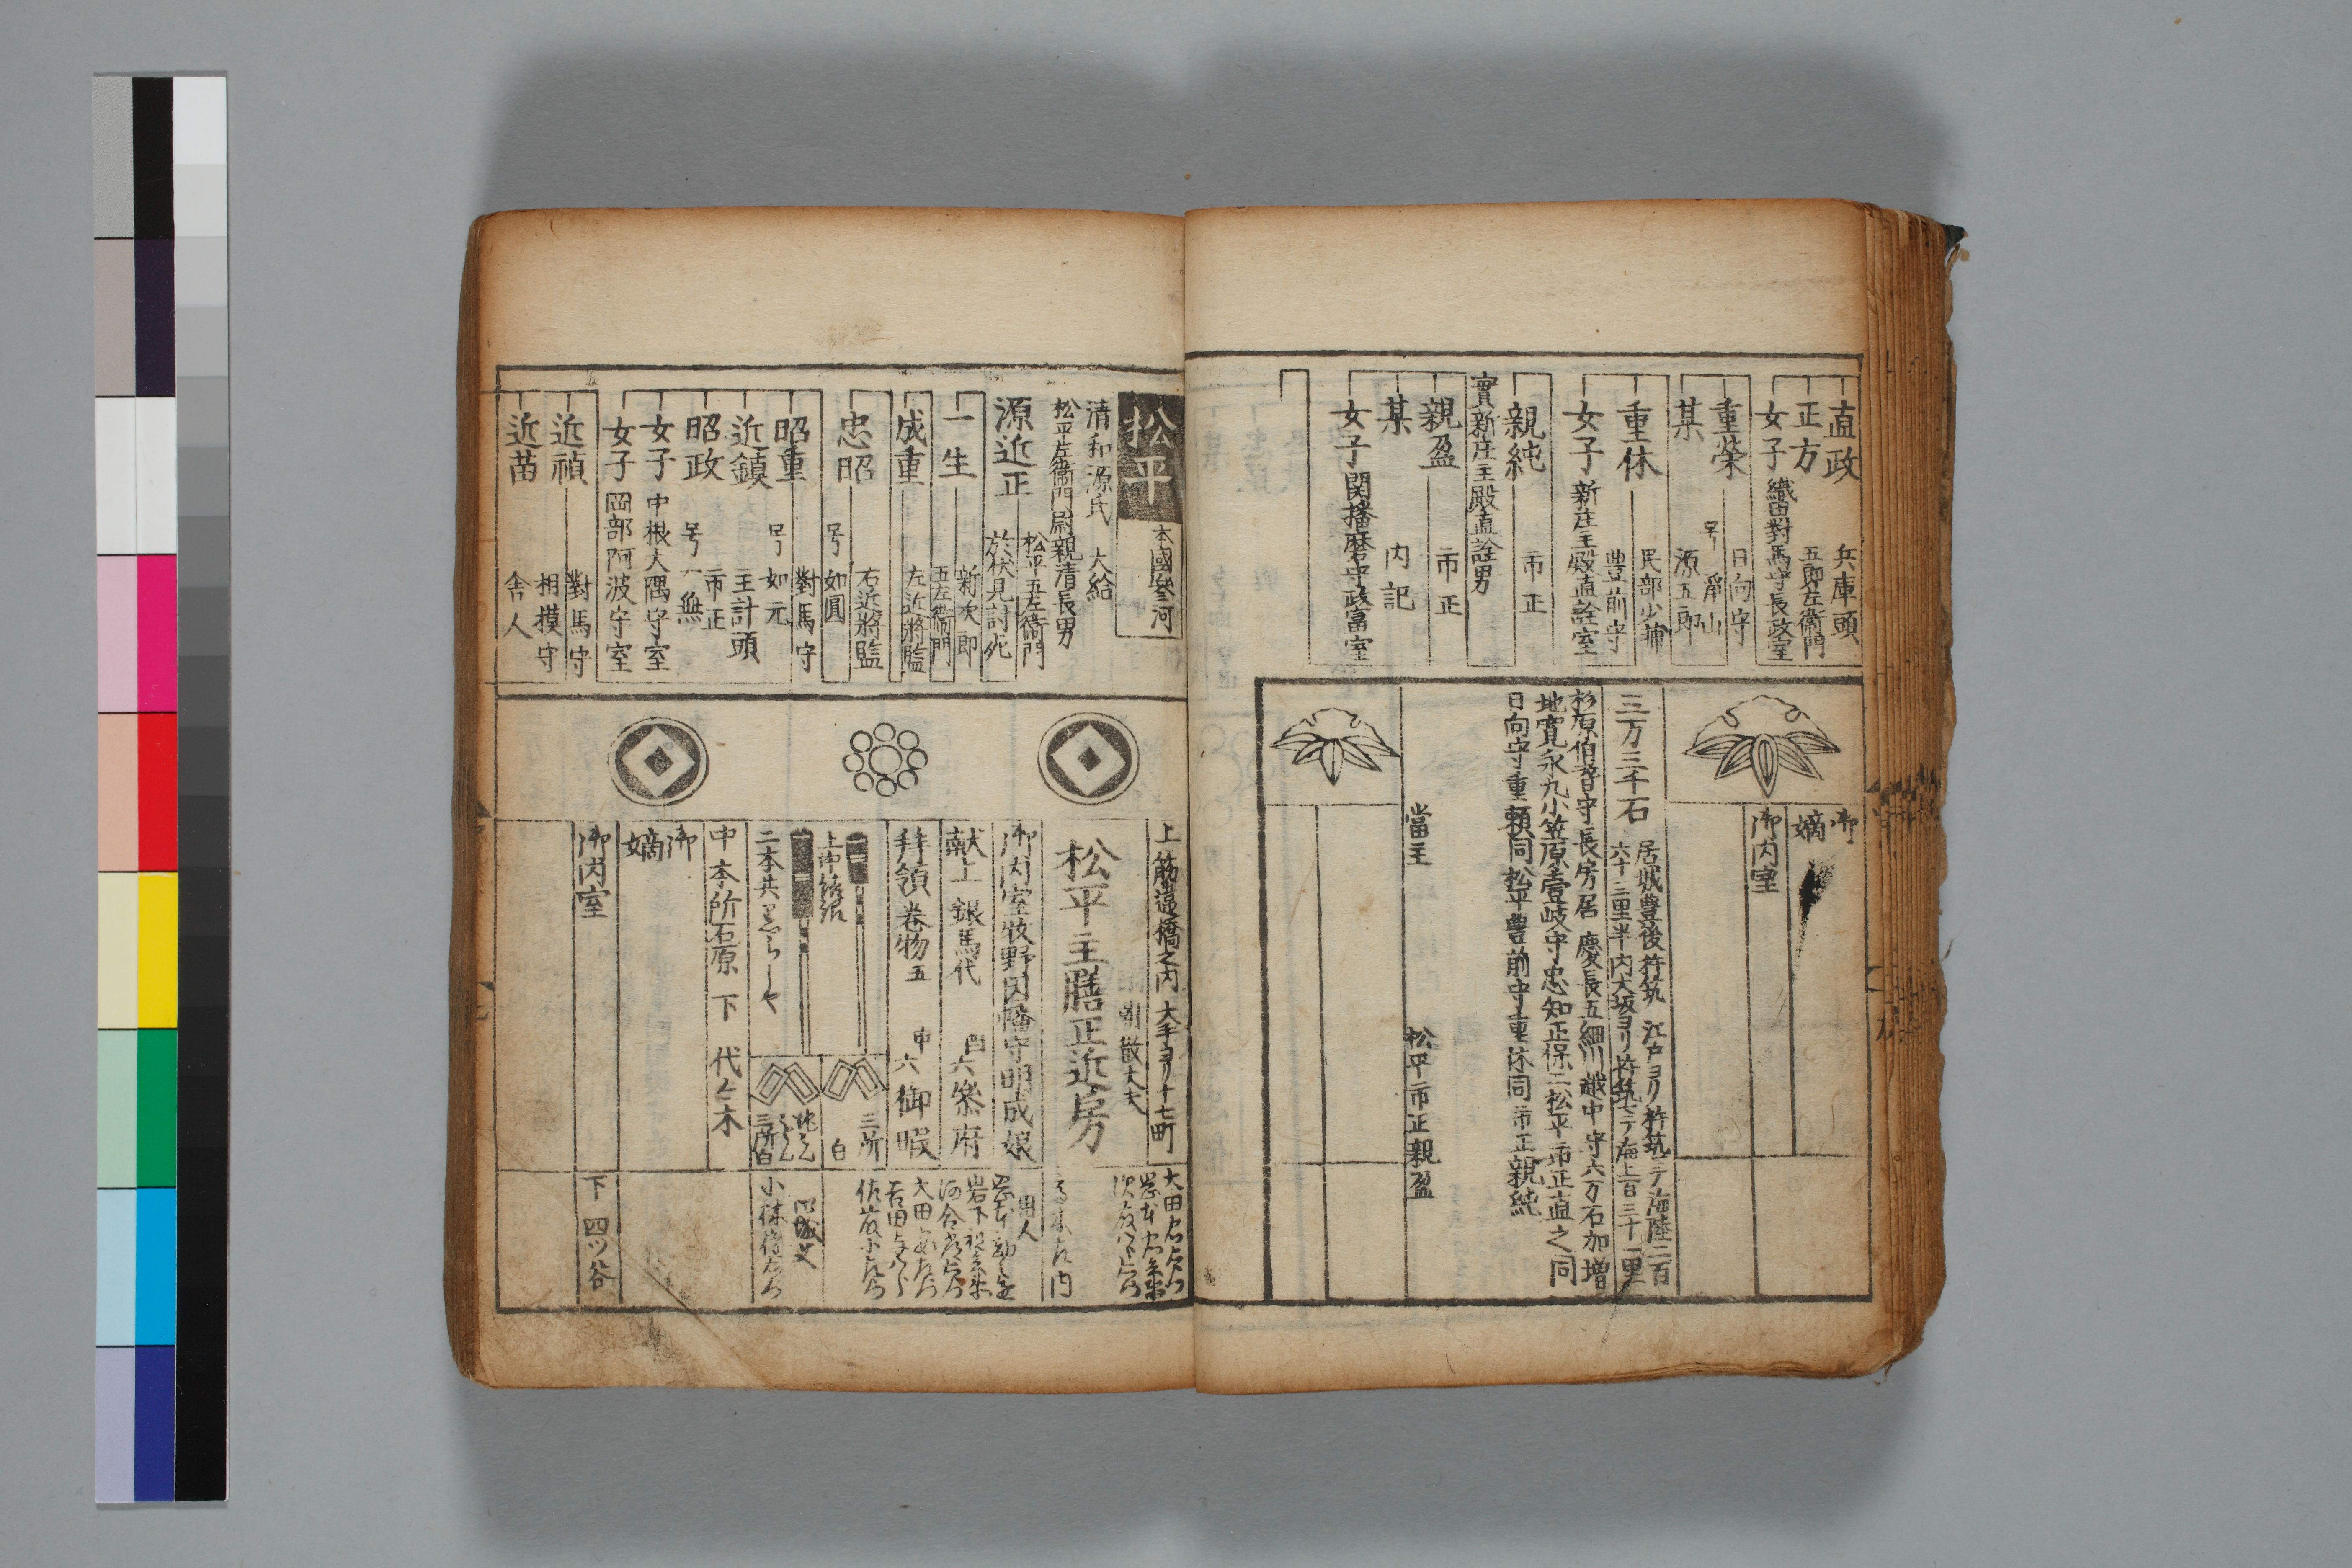 直政 兵庫頭
正方 五郎左衞門
女子 織田對馬守長政室
重榮 日向守
号 淨山
某 源五郎
重休 民部少輔
豊前守
女子 新庄主殿直詮室
親純 市正
實新庄主殿直詮男
親盈 市正
某 内記
女子 関播磨守政富室
御嫡
御内室
三万三千石
居城豊後杵筑 江戸ヨリ杵筑マテ海陸二百
六十三里半内大坂ヨリ杵筑マテ海上百三十一里
杉原伯耆守長房居 慶長五細川越中守六万石加増
地寛永九小笠原壹岐守忠知正保二松平市正直之同
日向守重頼同松平豊前守重休同市正親純
當主 松平市正親盈
松平 本國参河
清和源氏 大給
松平左衞門尉親清長男
源近正 松平五左衞門
於伏見討死
一生 新次郎
五左衞門
成重 左近將監
忠昭 右近將監
号 如圓
昭重 對馬守
号 如元
近鎮 主計頭
昭政 市正
号 一無
女子 中根大隅守室
女子 岡部阿波守室
近禎 對馬守
相摸守
近苗 舎人
上 筋違橋之内 大手ヨリ十七町
朝散大夫
松平主膳正近房
御内室牧野因幡守明成娘
献上 銀馬代 六 参府
拝領 巻物五 中 六 御暇
三所
白
二本共
三所白
中 本所石原 下 代々木
御嫡
御内室
用人
下 四ツ谷